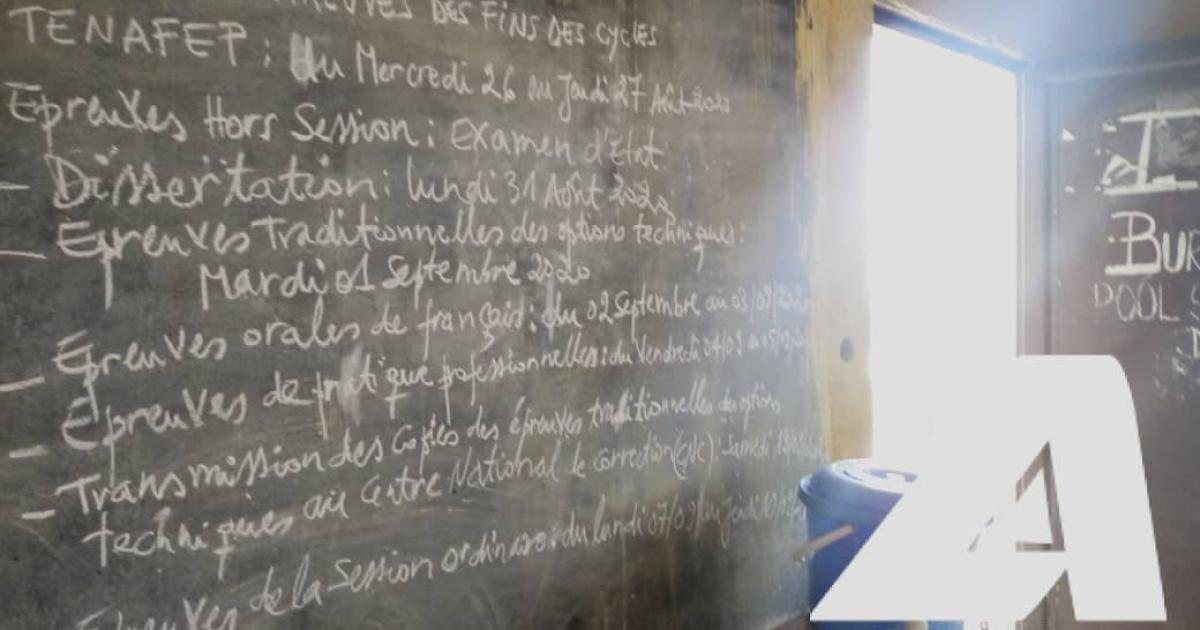 DES FINS DES CYCLES
TENAFEP : Du Mercredi 26 au Jeudi 27 Août 2020
Epreuves Hors Session : Examen d'Etat
- Dissertation : lundi 31 Août 2020
- Epreuves Traditionnelles des options techniques :
Mardi 01 Septembre 2020
- Epreuves orales de français : du 02 Septembre au 03/09/2020
- Epreuves de pratique professionnelles : du Vendredi 04/09 au 15/09
- Transmission des Copies des épreuves traditionnelles des options
techniques au Centre National de correction (CNC) Samedi
Epreuves de la Session ordinaire : du lundi 07/09 au Jeudi 10
BUR
POOL
A